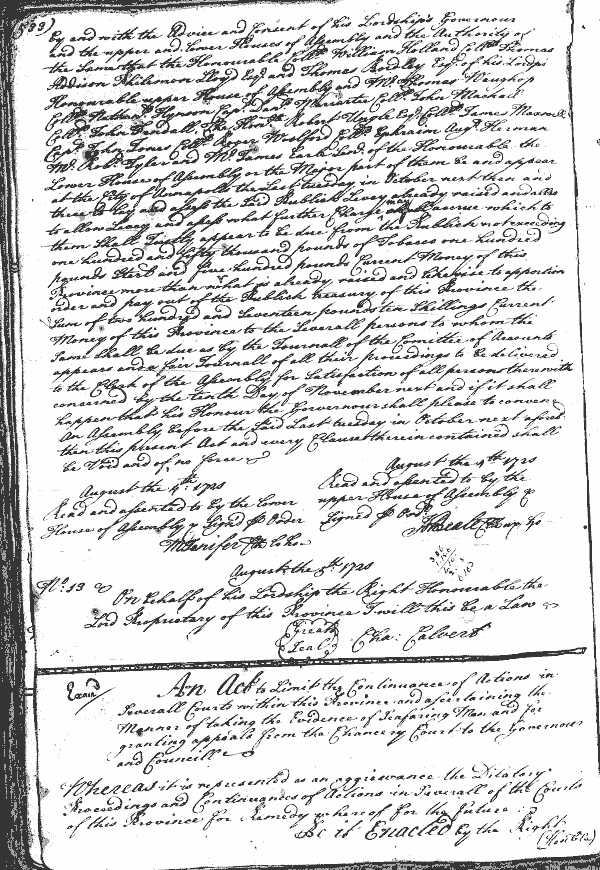 By and with the Advice and Consent of his Lordships Governour
and the upper and Lower Houses of Assembly and the Authority of
the Same that the Honourable Collo. William Holland Collo. Thomas
Addison Philemon Lloyd Esqr. and Thomas Bordley Esqr. of his Lordsps
Honourable upper House of Assembly and Mr. Thomas Waughop
Collo. Nathan. Hynson Capt. Danl. Mariartie Collo. John Mackall
Collo. John Bradall, The Honble. Robert Ungle Esqr. Collo. James Maxwell
Capt. John Jones Collo. Roger Woolford Collo. Ephraim Augt. Herman
Mr. Robt. Tyler and Mr. James Earle of the Honourable the
Lower House of Assembly or the Major part of them be and appear
at the City of Annapolis the Last tuesday in October next then and
there to Lay and assess the Said Publick Levey already raised and also
to allow Levey and assess what further Charge may accrue which to
them Shall Justly appear to be due from the Publick not exceeding
one hundred and fifty thousand pounds of Tobacco one hundred
pounds Sterl. and five hundred pounds Current Money of this
Province more than what is already raised and Likewise to apportion
order and pay out of the Publick treasury of this Province the
Sum of two hundred and Seventeen pounds ten Shillings Current
Money of this Province to the Severall persons to whom the
Same shall be due as by the Journall of the Comittee of Accounts
appears and a fair Journall of all their proceedings to be delivered
to the Clerk of the Assembly for Satisfaction of all persons therewith
concerned by the tenth Day of November next and if it shall
happen that his Honour the Governour shall please to convene
An Assembly before the Said Last tuesday in October next aforesd.
then this present Act and every Clause therein contained shall
be Void and of no force
August the 4th. 1720
Read and assented to by the Lower
House of Assembly & Signed p Order
M Jenifer Clk Lo ho.
August the 4th 1720
Read and assented to by the
upper House of Assembly &
Signed p Ordr.
August the 5th. 1720
No. 13 On behalf of his Lordship the Right Honourable the
Lord Proprietary of this Province I will this be a Law
Great
Seal Cha: Calvert
Examd
An Act to Limit the Continuance of Actions in
Severall Courts within this Province and ascertaining the
Manner of taking the Evidence of Seafaring Men and for
granting appeals from the Chancery Court to the Governour
and Councill
Whereas it is represented as an aggrievance the Dilatory
Proceedings and Continuances of Actions in Severall of the Courts
of this Province for Remedy whereof for the future
Be it Enacted by the Right
(Honble)